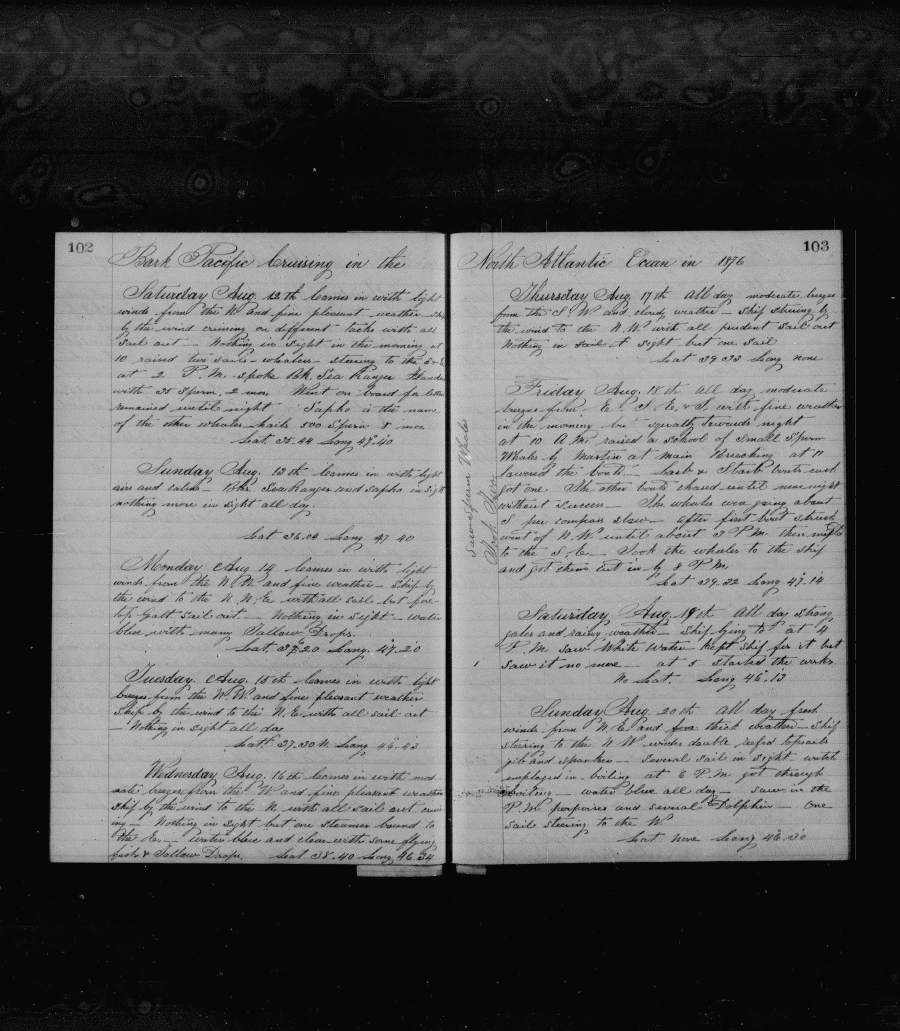 102
Bark Pacific Cruising in the
Saturday Aug. 12th Comes in with light
winds from the W and fine pleasant weather
by the wind cruising on different tacks with all
sail out — Nothing in sight in the morning at
10 raised two sails — whalers — steering to the
at 2 P.M. spoke Bk. Sea Ranger
with 35 Sperm, 2 mos. Went on board
remained until night Sapho is the name
of the other whaler hails 500 Sperm 8 mos
Lat 35.44 Long 47.40
Sunday Aug. 13th Comes in with light
airs and calms — Bks. Sea Ranger and Sapho in sight
nothing more in sight all day.
Lat 36.08 Long 47 40
Monday Aug 14 Comes in with light
winds from the N W and fine weather — Ship by
the wind to the N.N.E with all sail but fore-
top Galt sail out. — Nothing in sight — water
blue with many Tallow Drops.
Lat. 37.20 Long. 47.20
Tuesday. Aug. 15th Comes in with light
breezes from the W and fine pleasant weather
Ship by the wind to the N.E. with all sail out
— Nothing in sight all day
Lat. 37.50 N. Long 46.43
Wednesday Aug. 16th Comes in with mod
erate breezes from the W and fine pleasant weather
ship by the wind to the N with all sail out
ing — Nothing in sight but one steamer bound to
the E. — water blue and clear with some flying
fish & Tallow Drops. Lat 38.40 Long 46.34
103
North Atlantic Ocean in 1876
Thursday Aug. 17th All day moderate breezes
from the S. W and cloudy weather — Ship steering by
the wind to the N.W. with all prudent sail out
Nothing in sail sight but one sail
Lat 39.33 Long none
Friday Aug. 18th All day moderate
breezes from E. S.E. & S. with fine weather
in the morning bu squally towards night
at 10 A.M. raised a school of Small Sperm
Whales by Martin at main Breaching at 11
lowered the boats. Larb & Starb boats each
got one. The other boats chased until near night
without success — The whales were going about
S per compass slow — after first boat struck
went off N.W. until about 3 P.M. then
to the S.E. — Took the whales to the ship
and got them cut in by 8 P.M.
Lat 39.32 Long 47.14
Saw Sperm Whales
Took Two
Saturday Aug. 19th All day strong
gales and rainy weather — Ship lying to at 4
P.M. saw White Water Kept ship for it but
saw it no more — at 5 started the works
No Lat. Long 46.13
Sunday Aug. 20th All day fresh
winds from N.E. and fine thick weather — Ship
steering to the N W under double reefed topsails
jib and spanker — Several sail in sight watch
employed in boiling at 6 P.M. got through
boiling — water blue all day — saw in the
P.M. porpoises and several Dolphin — One
sail steering to the W
Lat none Long 46.30